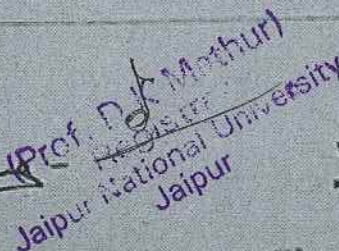 (Prof. D.K Mathur)
Registrar
Jaipur National University
Jaipur